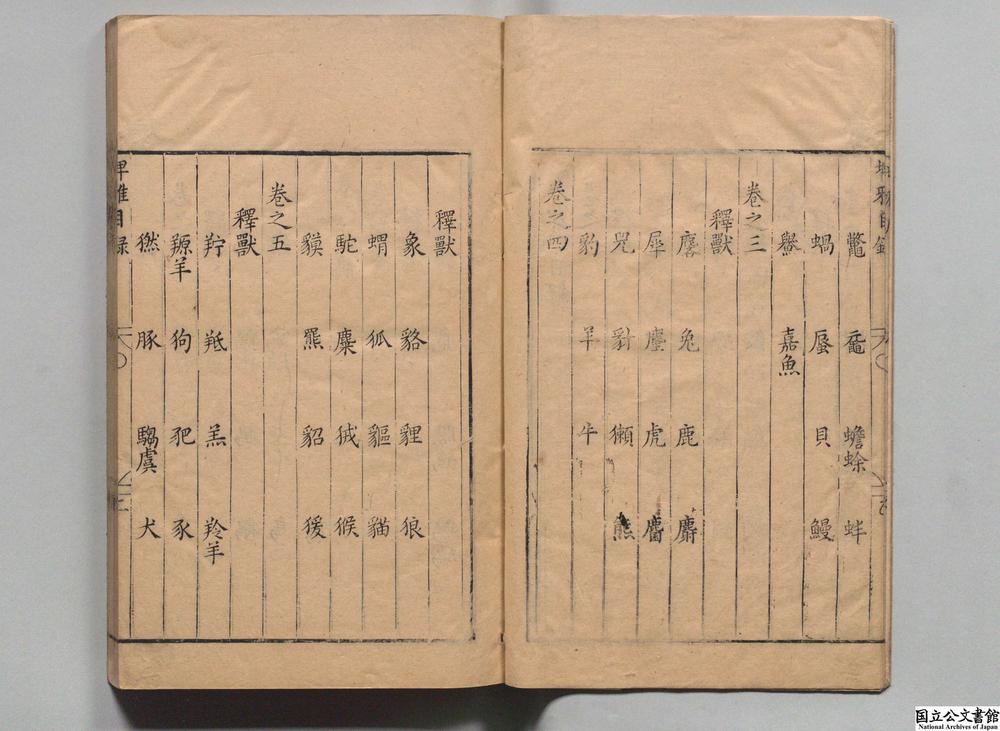 埤雅目錄
鼈 黿 蟾蜍 蚌
蝸 蜃 貝 鰻
鱟 嘉魚
卷之三
釋獸
麐 兔 鹿 麝
犀 麈 虎 麕
兕 豺 獺 熊
豹 羊 牛
卷之四
釋獸
象 貉 貍 狼
蝟 狐 貙 貓
駝 麋 狨 猴
貘 羆 貂 猨
卷之五
釋獸
羜 羝 羔 羚羊
羱羊 狗 豝 豕
豚 騶虞 犬
埤雅目録
国立公文書館
National Archives of Japan